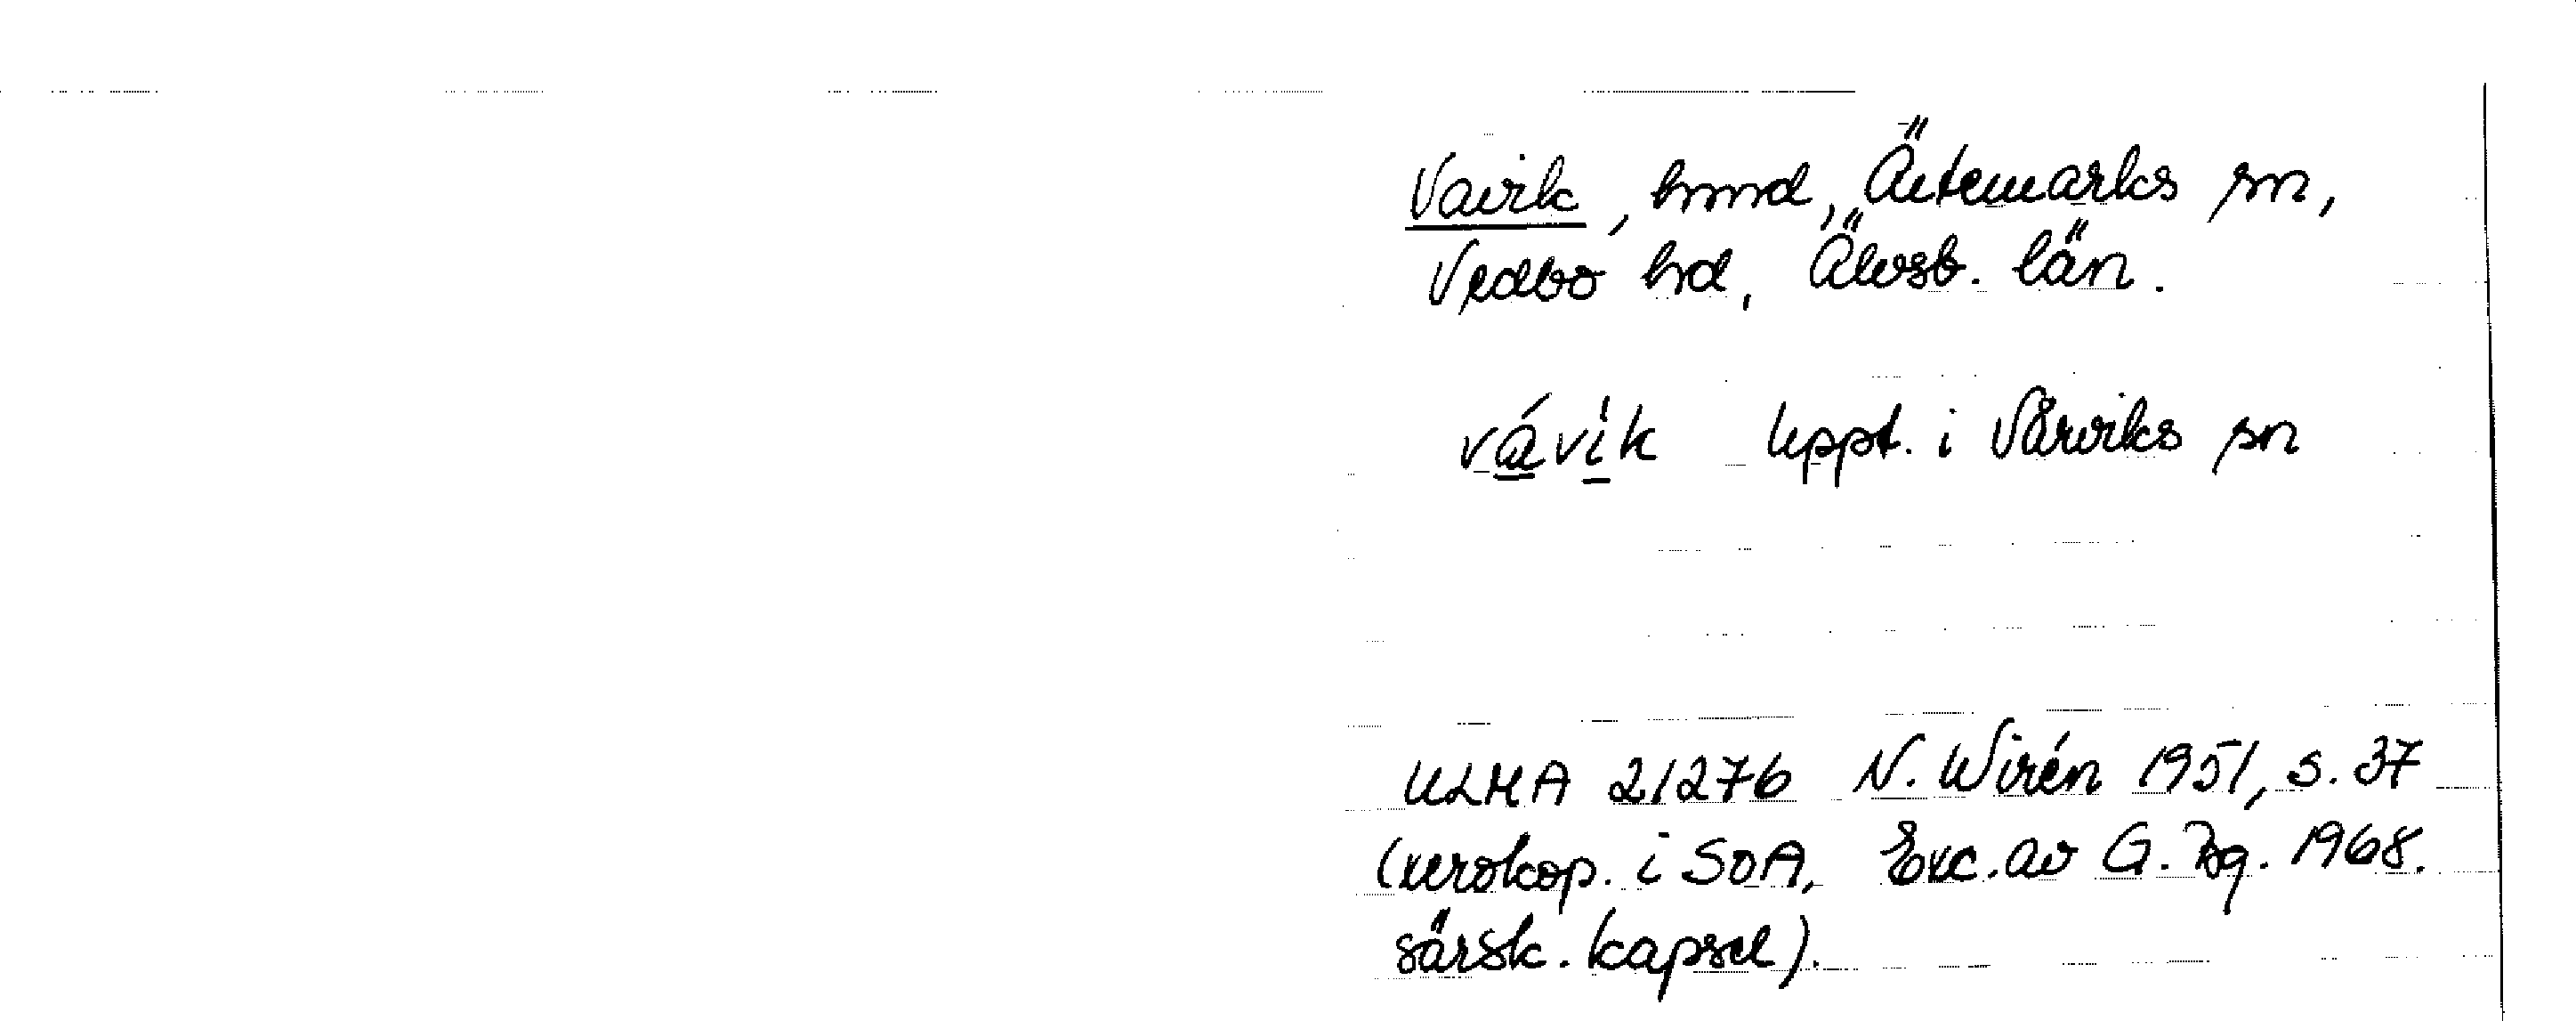 Vavik, hmd, Ärtemarks sn,
Vedbo hd, Älvsb. län.
vávik Uppt. i Vårviks sn
ULMA 21276 N. Wirén 1951, s. 37
(xerokop. i SOA, Exc. av G. Bg. 1968.
särsk. kapsel).